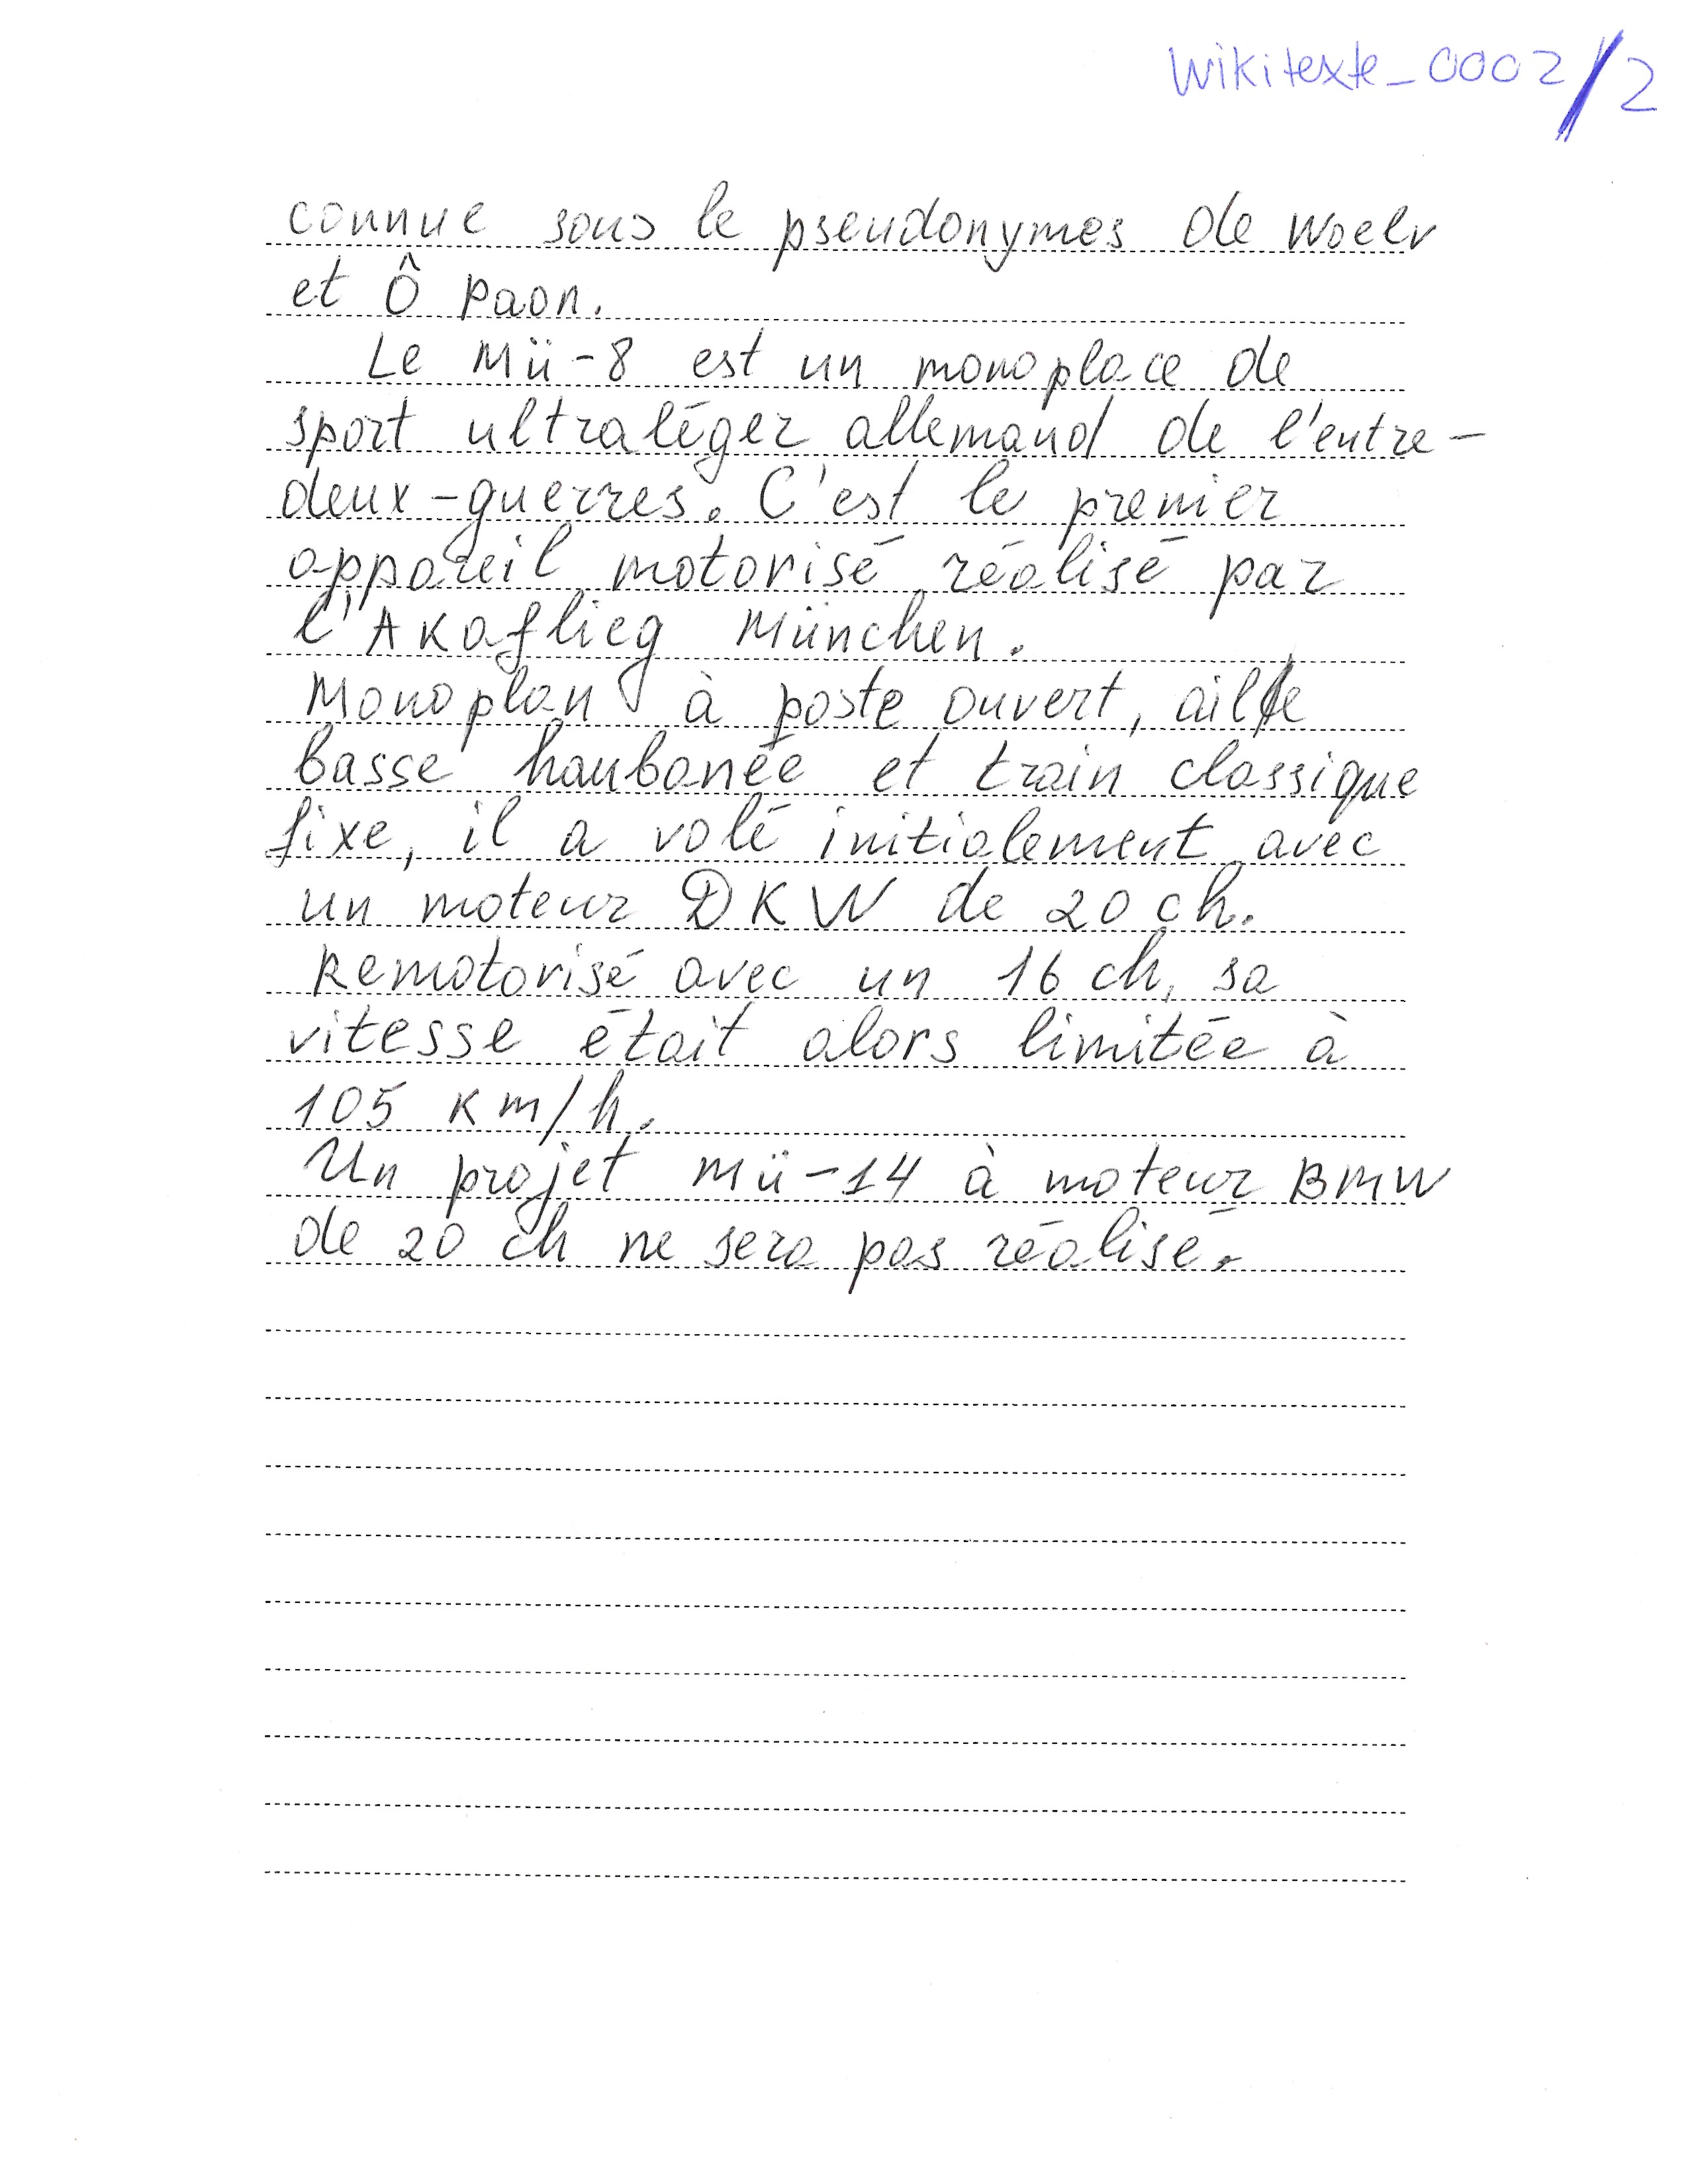 Wikitexte_0002/2
connue sous le pseudonymes de Woelv
et Ô Paon.
Le Mü-8 est un monoplace de
sport ultraléger allemand de l'entre-
deux-guerres. C'est le premier
appareil motorisé réalisé par
l'Akaflieg München.
Monoplan à poste ouvert, aile
basse haubanée et train classique
fixe, il a volé initialement avec
un moteur DKW de 20 ch.
Remotorisé avec un 16 ch, sa
vitesse était alors limitée à
105 km/h.
Un projet Mü-14 à moteur BMW
de 20 ch ne sera pas réalisé.